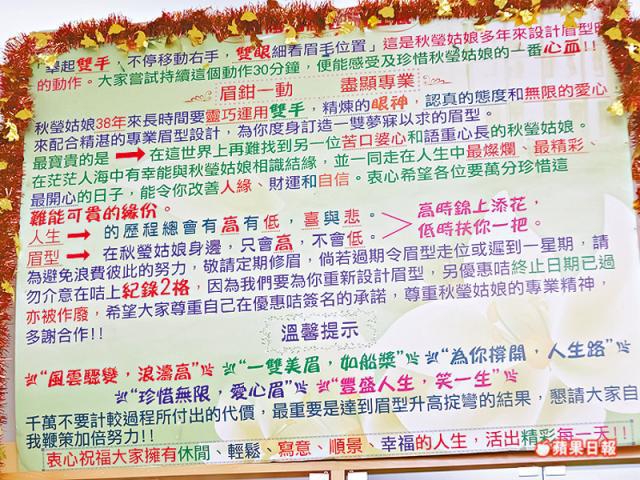 「舉起雙手，不停移動右手，雙眼細看眉手位置」這是秋瑩姑娘多年來設計眉型時
的動作。大家嘗試持續這個動作30分鐘，便能感受及珍惜秋瑩姑娘的一番心血!!
眉鉗一動　盡顯專業
秋瑩姑娘38年來長時間要靈巧運用雙手，精煉的眼神，認真的態度和無限的愛心
來配合精湛的專業眉型設計，為你度身訂造一雙夢寐以求的眉型。
最寶貴的是→在這世界上再難找到另一位苦口婆心和語重心長的秋瑩姑娘。
在茫茫人海中有幸能與秋瑩姑娘相識結緣，並一同走在人生中最燦爛、最精彩、
最開心的日子，能令你改善人緣、財運和自信。衷心希望各位要萬分珍惜這
難能可貴的緣份。
人生→的歷程總會有高有低，喜與悲。
眉型→在秋瑩姑娘身邊，只會高，不會低。
高時錦上添花，
低時扶你一把。
為避免浪費彼此的努力，敬請定期修眉，倘若過期令眉型走位或遲到一星期，請
勿介意在咭上紀錄2格，因為我們要為你重新設計眉型，另優惠咭終止日期已過
亦被作廢，希望大家尊重自己在優惠咭簽名的承諾，尊重秋瑩姑娘的專業精神，
多謝合作!!
溫馨提示
“風雲驟變，浪濤高” “一雙美眉，如船槳” “為你撐開，人生路”
“珍惜無限，愛心眉” “豐盛人生，笑一生”
千萬不要計較過程所付出的代價，最重要是達到眉型升高掟彎的結果，懇請大家自
我鞭策加倍努力!!
衷心祝福大家擁有休閒、輕鬆、寫意、順景、幸福的人生，活出精彩每一天!!
蘋果日報